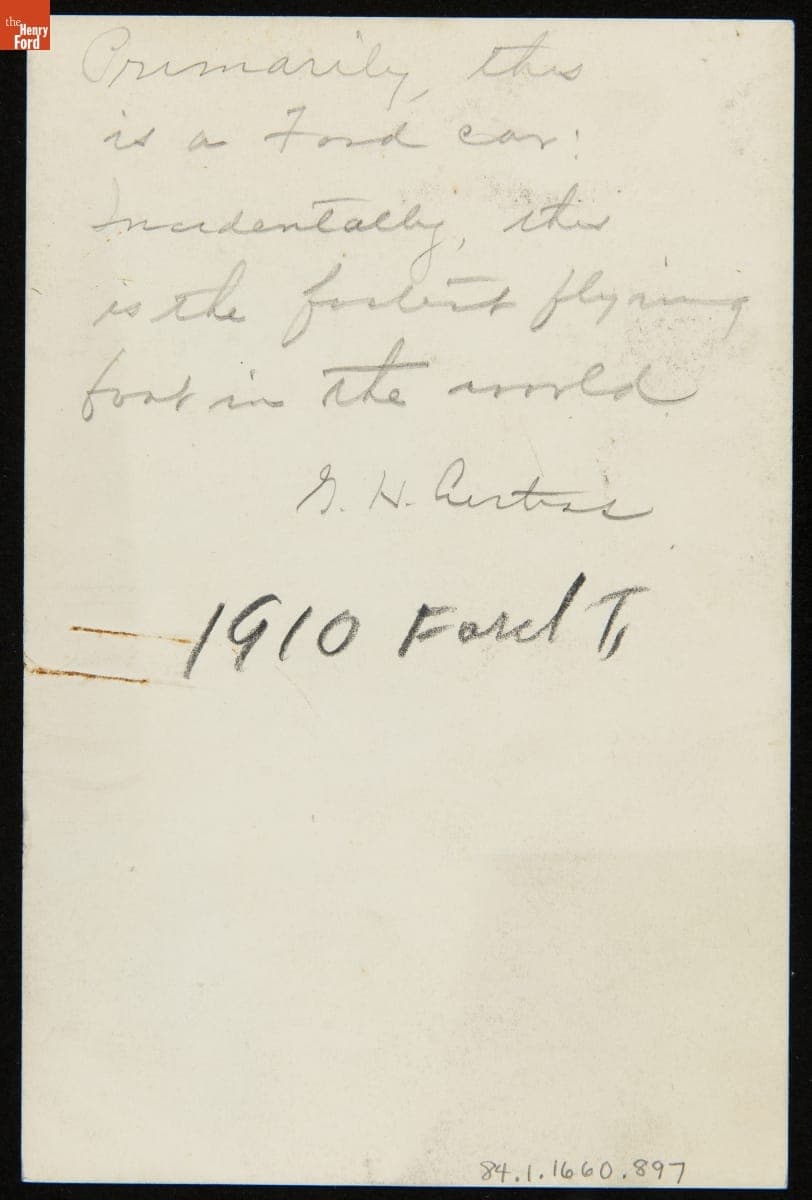 the
Henry
Ford
Primarily, this
is a Ford car:
Incidentally, this
is the fastest flying
boat in the world
G. H. Curtiss
1910 Ford T,
84.1.1660.897